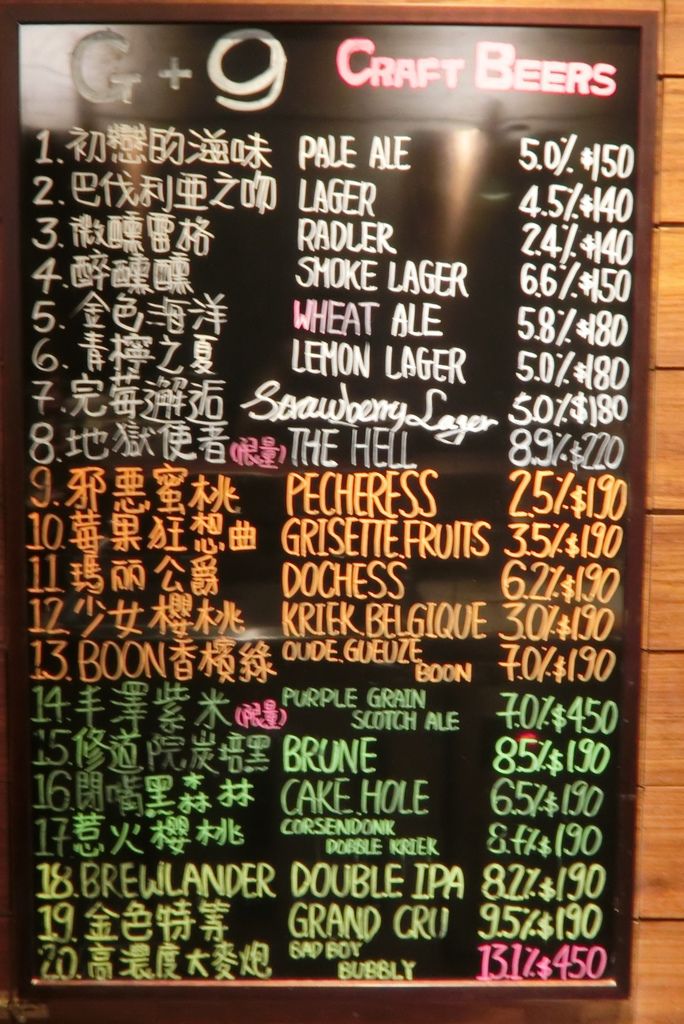 G+9 CRAFT BEERS
1. 初戀的滋味 PALE ALE 5.0% $150
2. 巴伐利亞之吻 LAGER 4.5% $140
3. 微醺雷格 RADLER 2.4% $140
4. 醉醺醺 SMOKE LAGER 6.6% $150
5. 金色海洋 WHEAT ALE 5.8% $180
6. 青檸之夏 LEMON LAGER 5.0% $180
7. 完莓邂逅 Strawberry Lager 5.0% $180
8. 地獄使者(限量) THE HELL 8.9% $220
9. 邪惡蜜桃 PECHERESS 2.5% $190
10. 莓果狂想曲 GRISETTE.FRUITS 3.5% $190
11. 瑪丽公爵 DOCHESS 6.2% $190
12. 少女櫻桃 KRIEK.BELGIQUE 3.0% $190
13. BOON香檳綠 OUDE.GUEUZE BOON 7.0% $190
14. 丰澤紫米(限量) PURPLE GRAIN SCOTCH ALE 7.0% $450
15. 修道院炭培黑 BRUNE 8.5% $190
16. 閉嘴黑森林 CAKE.HOLE 6.5% $190
17. 惹火櫻桃 CORSENDONK DOBBLE KRIEK $190
18. BREWLANDER DOUBLE IPA 8.2% $190
19. 金色特箐 GRAND CRU 9.5% $190
20. 高濃度大麥炮 BAD BOY BUBBLY 13.1% $450